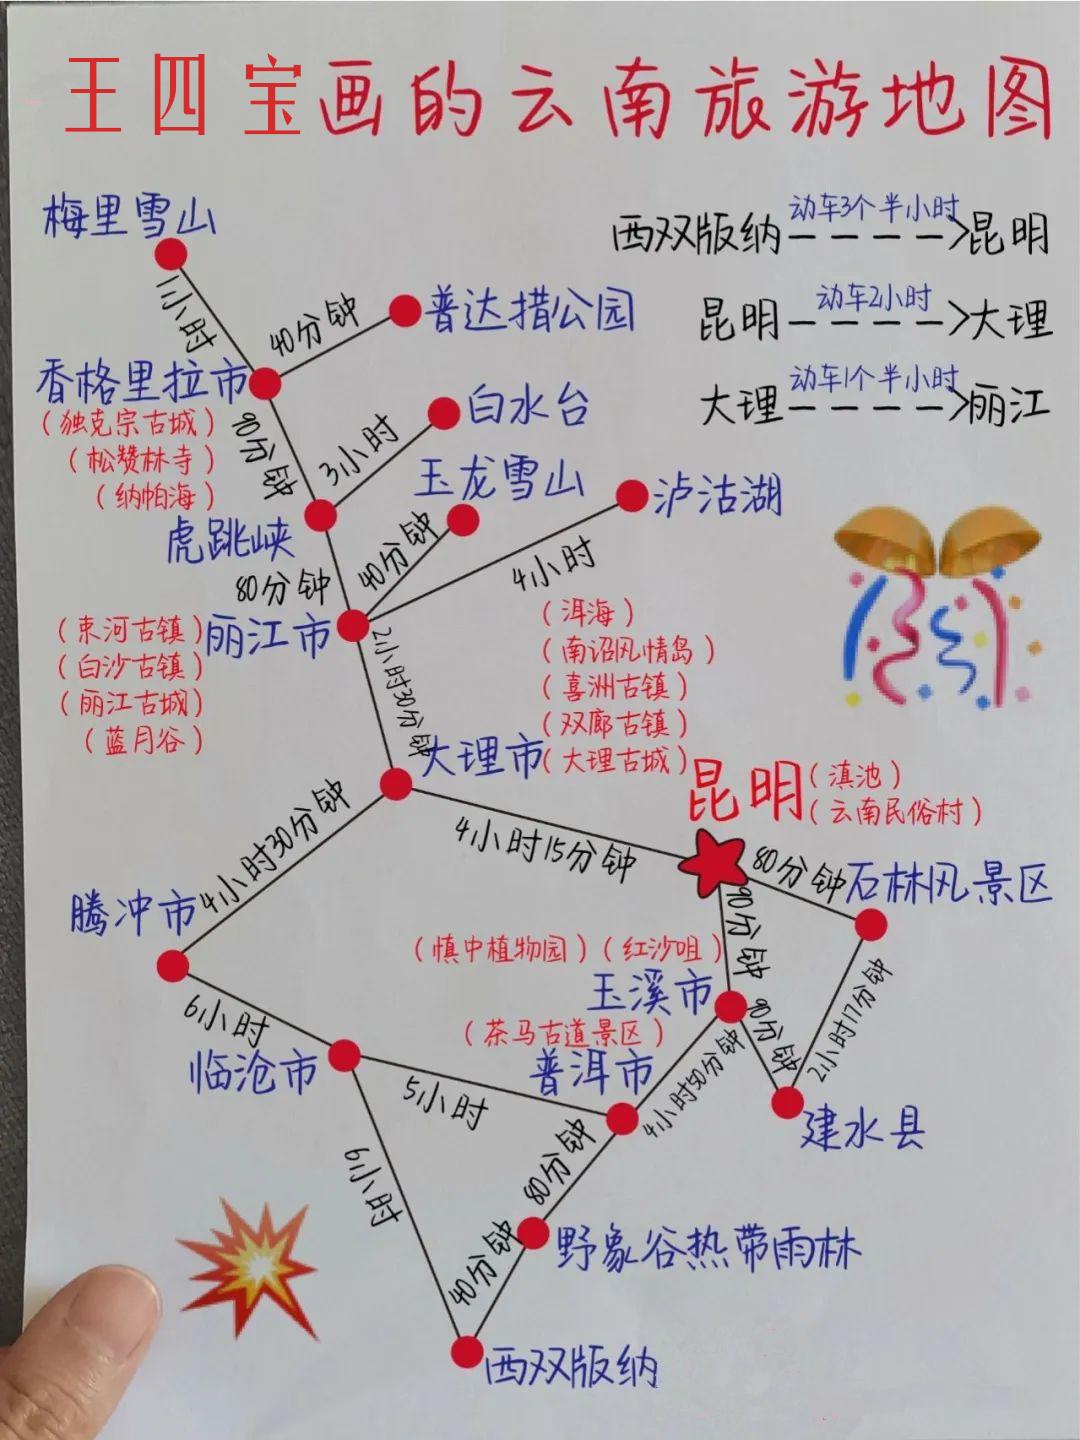 王四宝画的云南旅游地图
梅里雪山
西双版纳 动车3个半小时 昆明
昆明 动车2小时 大理
大理 动车1个半小时 丽江
1小时
40分钟
普达措公园
香格里拉市
(独克宗古城)
(松赞林寺)
(纳帕海)
90分钟
3小时
白水台
虎跳峡
玉龙雪山
泸沽湖
80分钟
40分钟
4小时
(束河古镇)
丽江市
(白沙古镇)
(丽江古城)
(蓝月谷)
2小时30分钟
(洱海)
(南诏风情岛)
(喜洲古镇)
(双廊古镇)
大理市(大理古城)
昆明(滇池)
(云南民俗村)
4小时30分钟
4小时15分钟
80分钟
石林风景区
腾冲市
90分钟
(慎中植物园)(红沙咀)
玉溪市
6小时
90分钟
2小时17分钟
(茶马古道景区)
临沧市
普洱市
5小时
4小时50分钟
建水县
6小时
80分钟
40分钟
野象谷热带雨林
西双版纳